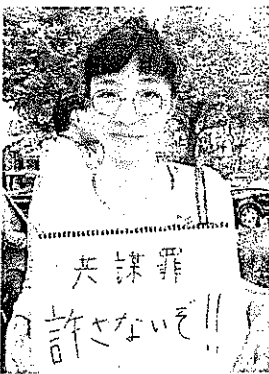 共謀罪
許さないぞ!!